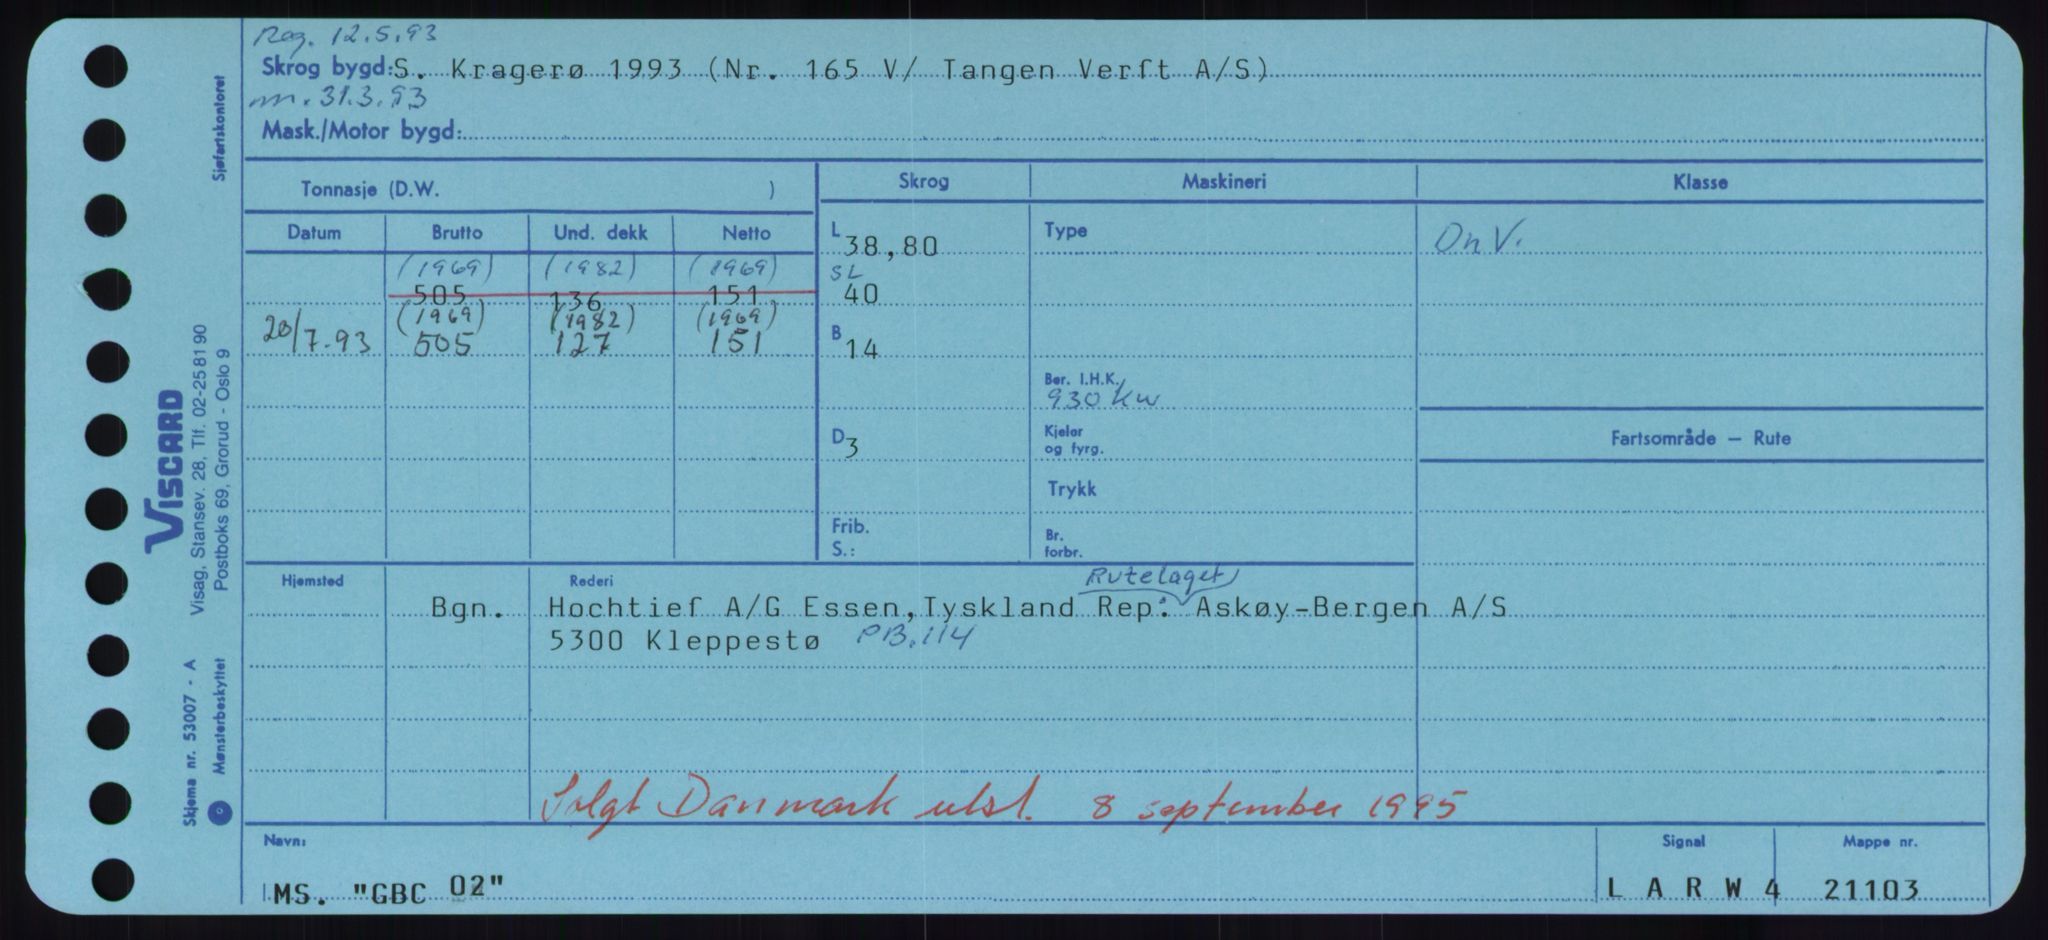 Reg. 12.5.93
Skrog bygd: S. Kragerø 1993 (Nr. 165 V/ Tangen Verft A/S)
m. 31.3.93
Mask./Motor bygd:
Tonnasje (D.W. )
Skrog Maskineri Klasse
Datum Brutto Und. dekk Netto
L 38,80 Type DnV.
(1969) (1982) (1969)
SL
505 136 151 40
(1969) (1982) (1969)
20/7-93 505 127 151
B 14
Ber. I.H.K.
930 Kw
D 3
Kjeler
og fyrg.
Fartsområde – Rute
Trykk
Frib.
S.:
Br.
forbr.
Hjemsted Rederi
Rutelaget
Bgn. Hochtief A/G Essen, Tyskland Rep: Askøy-Bergen A/S
5300 Kleppestø PB. 114
Solgt Danmark utsl. 8 september 1995
Navn: Signal Mappe nr.
MS. "GBC 02" L A R W 4 21103
Sjøfartskontoret
VISCARD
Visag, Stansev. 28, Tlf. 02-25 81 90
Postboks 69, Grorud - Oslo 9
Skjema nr. 53007 - A
Mønsterbeskyttet